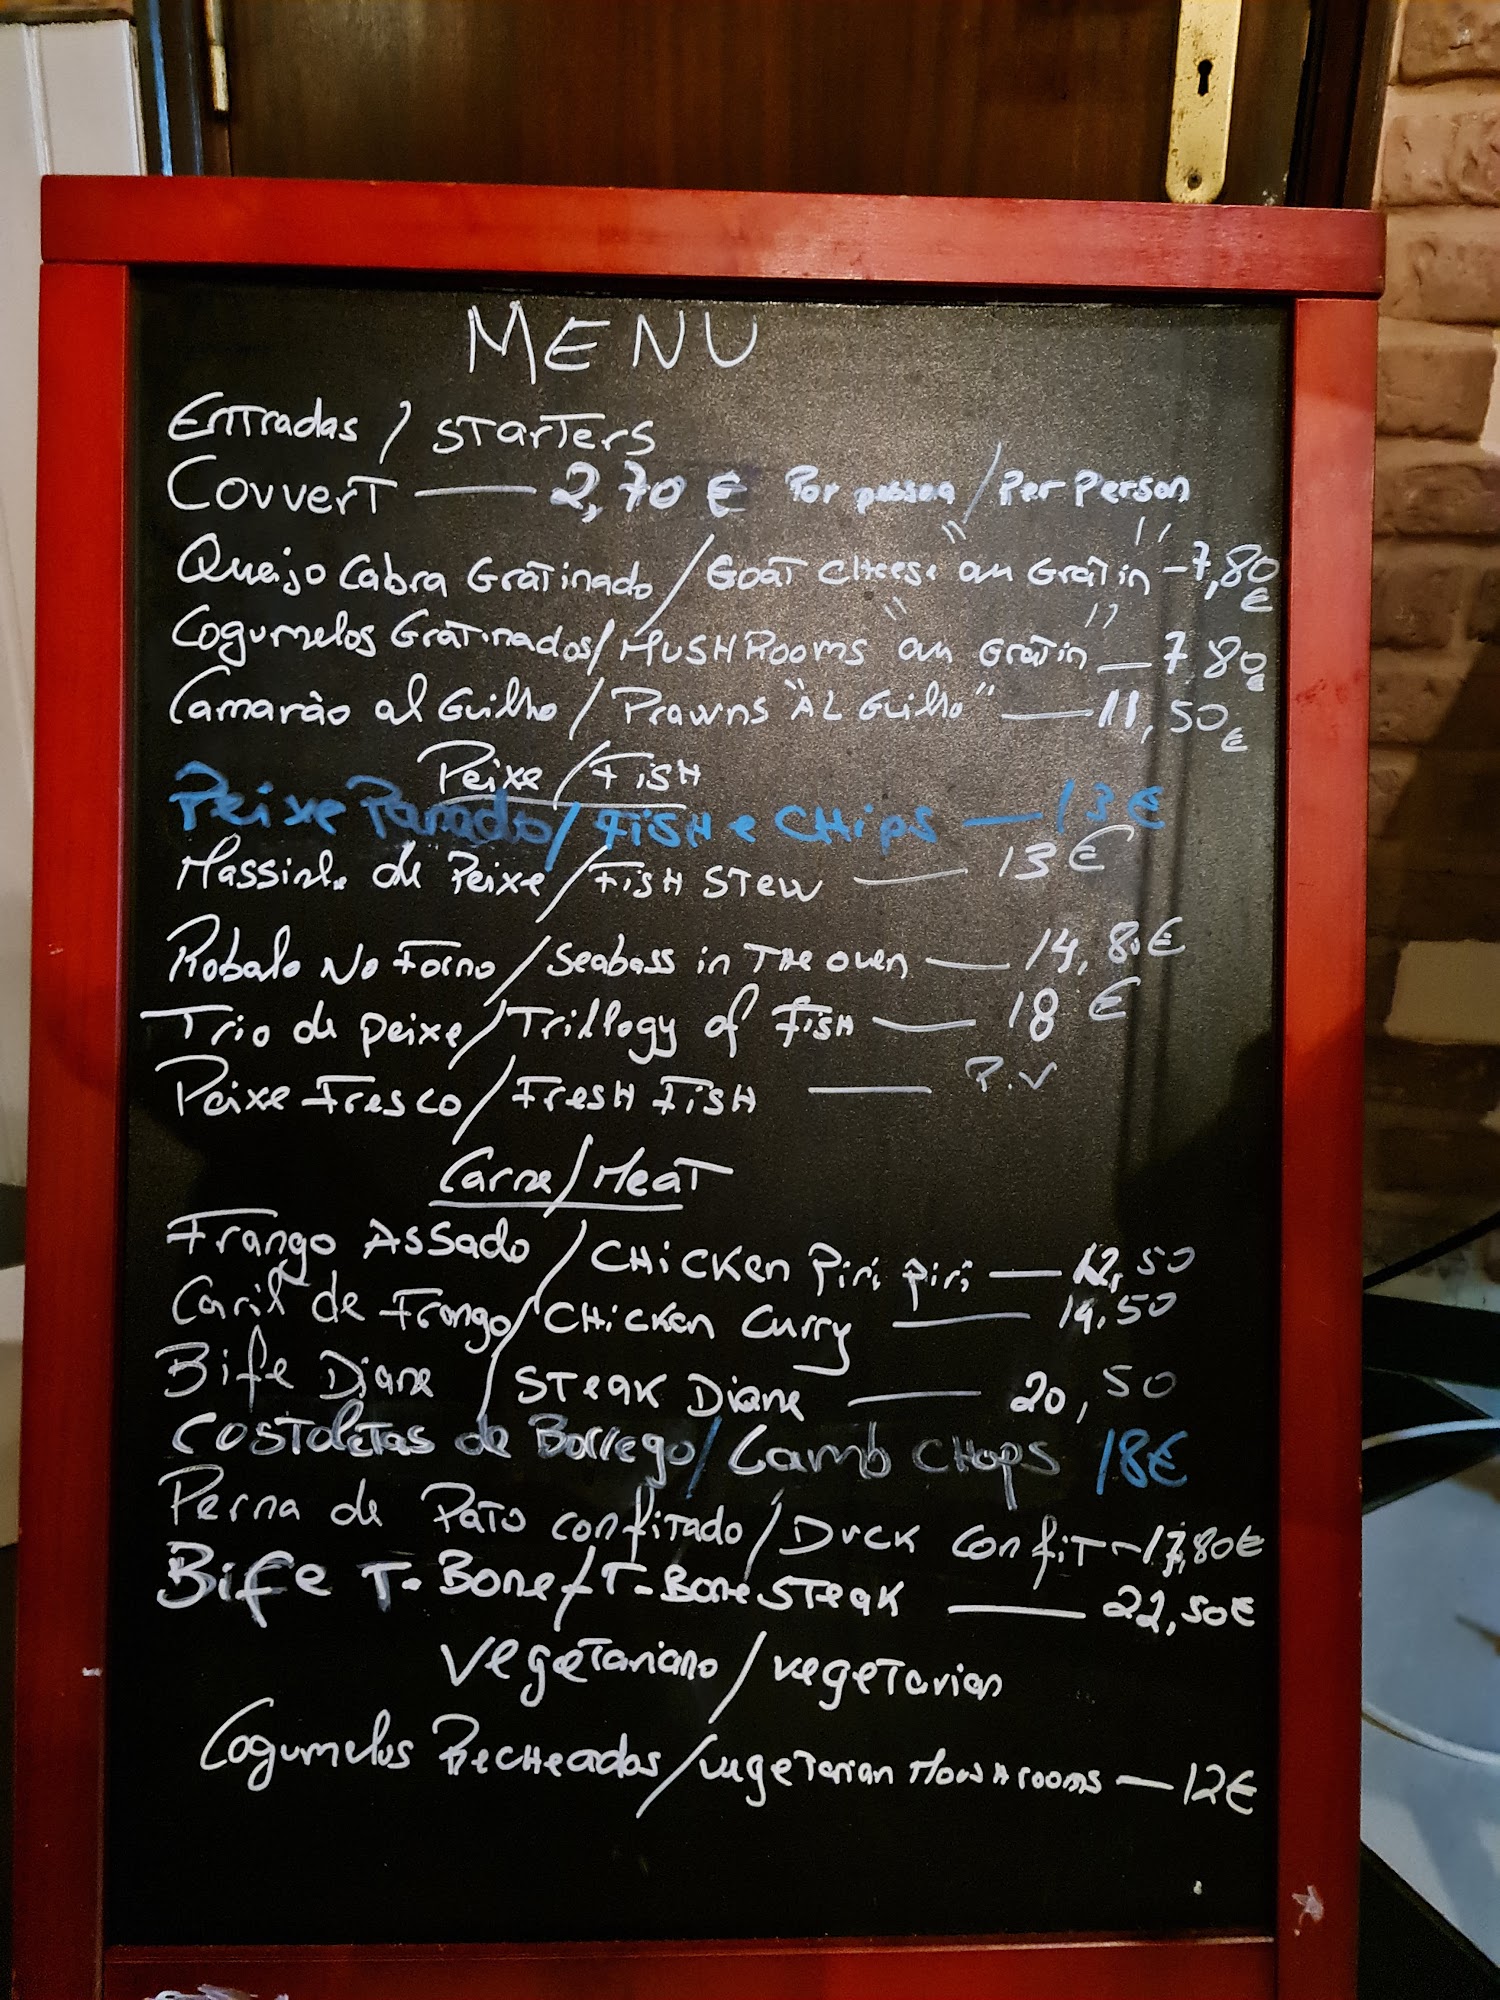 MENU
Entradas / Starters
Couvert — 2,70 € Por pessoa / Per Person
Queijo Cabra Gratinado / Goat Cheese "au Gratin" - 7,80 €
Cogumelos Gratinados / MUSHROOMS "au Gratin" — 7 80 €
Camarão al Guilho / Prawns "AL Guilho" — 11,50 €
Peixe / Fish
Peixe Panado / Fish e Chips — 13 €
Massinha de Peixe / Fish Stew — 13 €
Robalo No Forno / Seabass in The oven — 14,80 €
Trio de peixe / Trillogy of Fish — 18 €
Peixe Fresco / Fresh Fish — P.V
Carne / Meat
Frango Assado / Chicken Piri Piri — 12,50
Caril de Frango / Chicken Curry — 14,50
Bife Diane / Steak Diane — 20,50
Costoletas de Borrego / Lamb Chops 18€
Perna de Pato confitado / Duck Confit - 17,80€
Bife T-Bone / T-Bone Steak — 22,50€
Vegetariano / vegetarian
Cogumelos Recheados / vegetarian Moushrooms — 12€